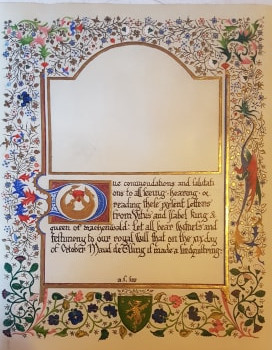 Due commendations and salutati
ons to all seeing · hearing · or
reading these present letters
from Vitus and Isabel king &
queen of drachenwald: Let all bear witness and
testimony to our royal will that on the day
of October Maud de Elling is made a Lindquistring·